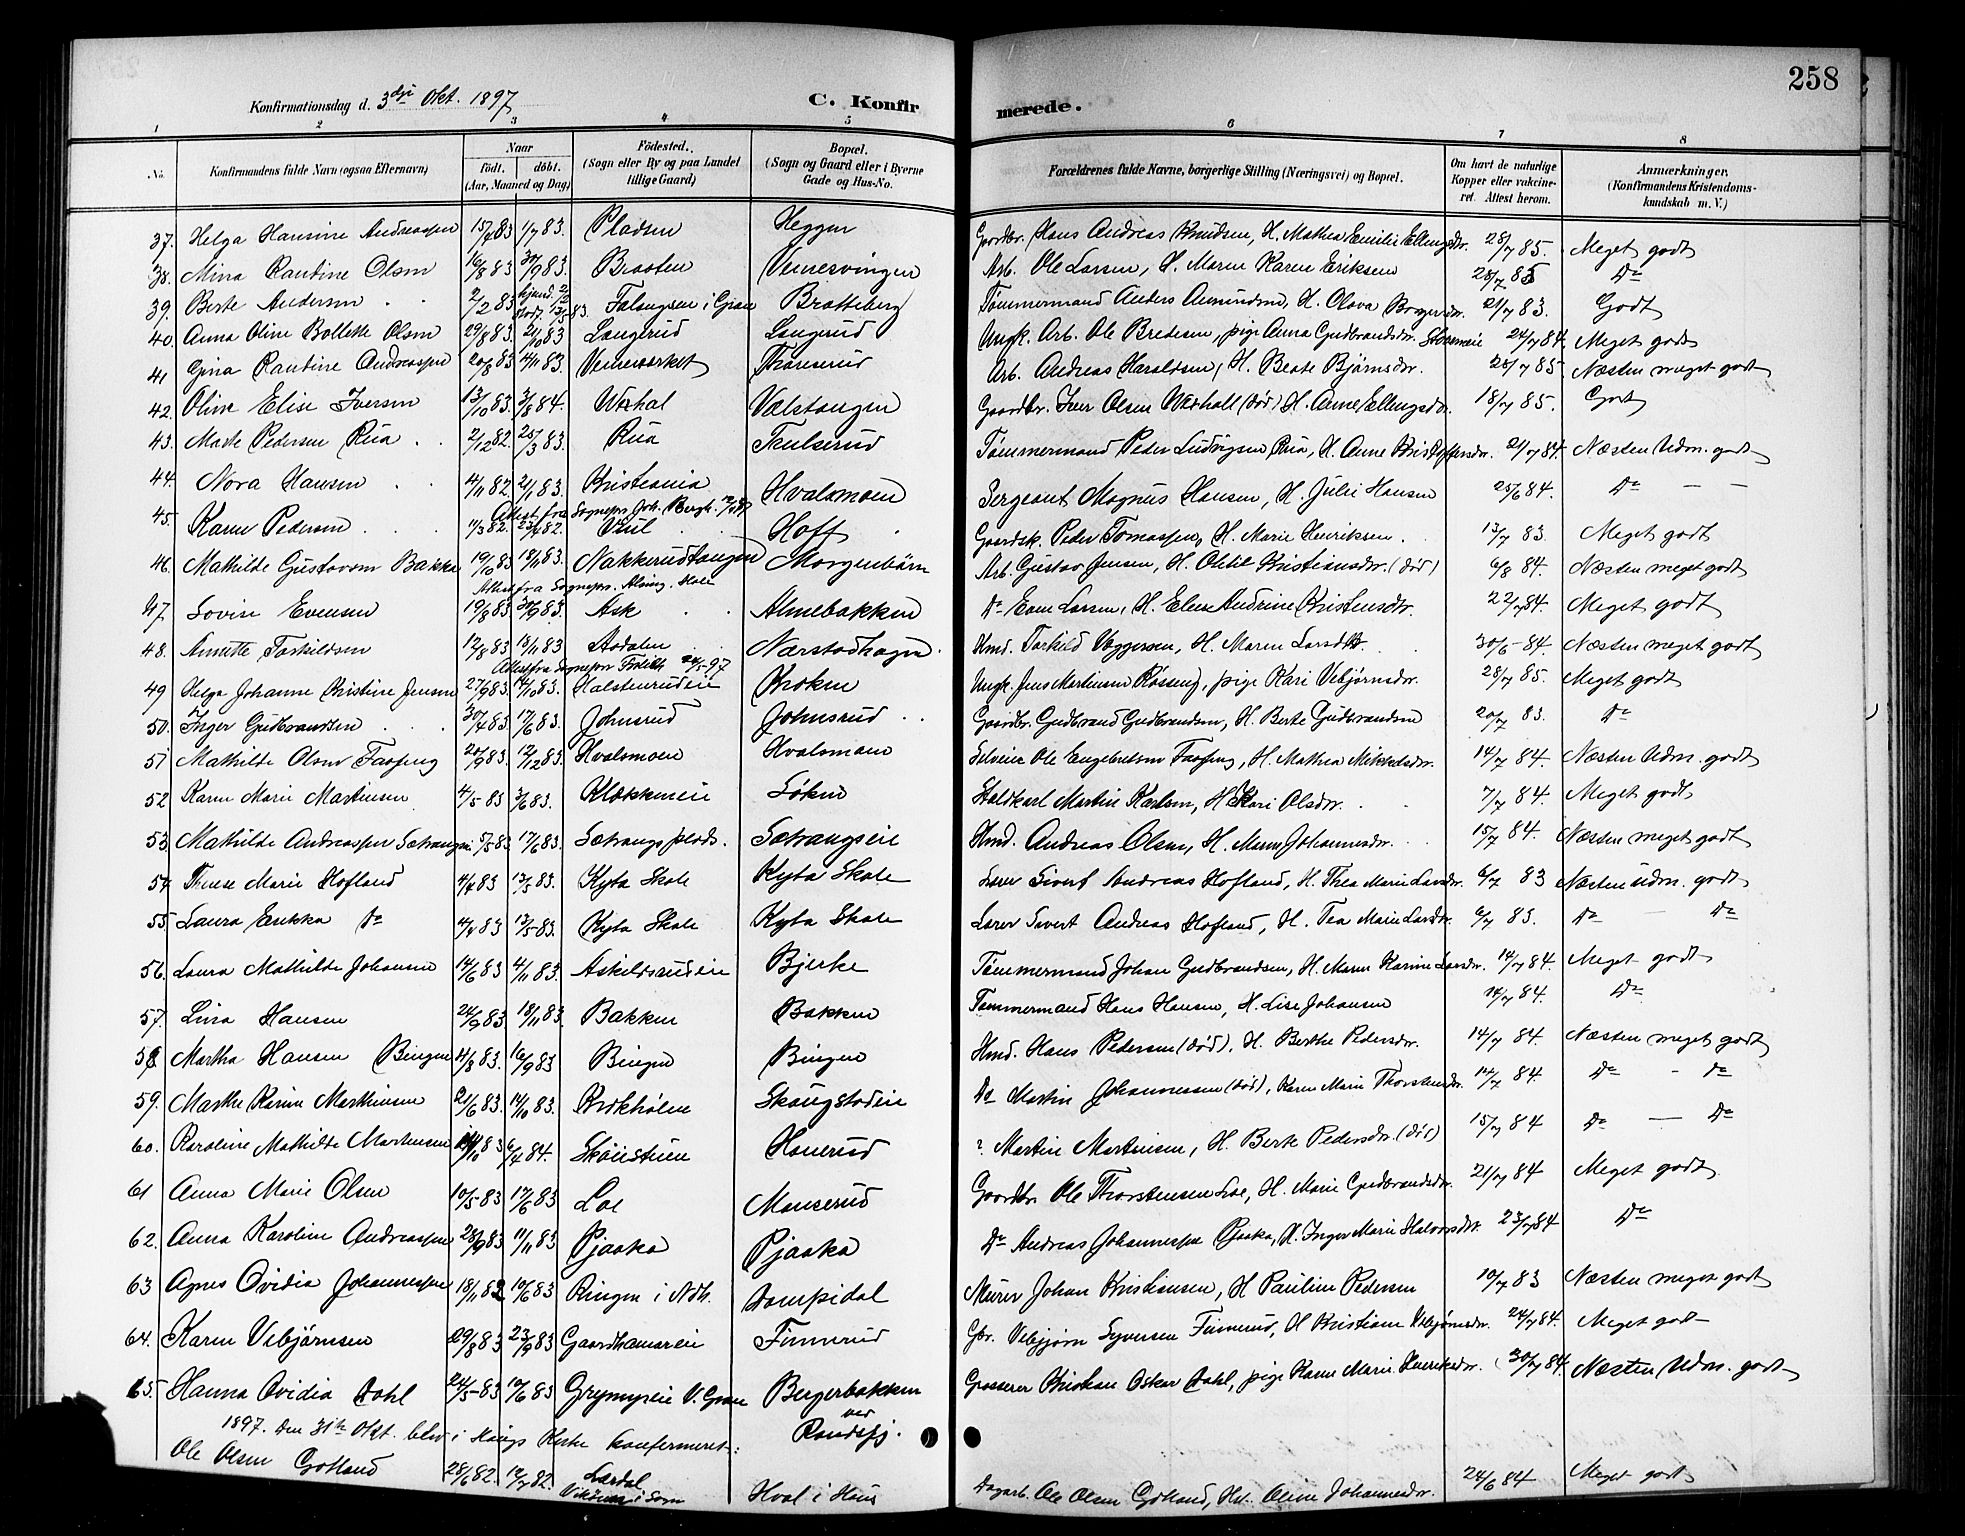 258
Konfirmationsdag d. 3die Okt. 1897
C. Konfirmerede.
1 2 3 4 5 6 7 8
No. Konfirmandens fulde Navn (ogsaa Efternavn) Naar født. døbt. (Aar, Maaned og Dag) Fødested. (Sogn eller By og paa Landet tillige Gaard) Bopæl. (Sogn og Gaard eller i Byerne Gade og Hus-No. Forældrenes fulde Navne, borgerlige Stilling (Næringsvei) og Bopæl. Om havt de naturlige Kopper eller vakcineret. Attest herom. Anmærkninger. (Konfirmandens Kristendomskundskab m. V.)
37. Helga Hansine Andreassen 15/4 83 1/7 83. Pladsen Heggen Gaardbr. Hans Andreas Knudsen, H. Mathea Emilie Ellingsdr. 28/7 85. Meget godt
38. Mina Randine Olsen 16/8 83 30/9 83. Braaten Vænesvingen Arb. Ole Larsen, H. Maren Karen Eriksen 28/7 85 Do
39. Berte Andersen 2/2 83 Falangsen i Gran Bratteberg Tømmermand Anders Amundsen, H. Olava Borgersdr. 21/7 83. Godt
40. Anna Oline Bollette Olsen 29/8 83. 21/10 83 Langerud Langerud Ungk. Arb. Ole Bredesen, pige Anna Gudbrandsdr. 24/7 84. Meget godt
41 Gina Randine Andreassen 20/8 83 4/11 83. Veneværket Tranerud Arb. Andreas Haraldsen, H. Beate Bjørnsdr. 25/7 85. Næsten meget godt
42. Oline Elise Iversen 13/10 83. 3/8 84. Værhal Vælstangen Gaardbr. Iver Olsen Værhall (død) H. Anne Ellingsdr. 18/7 85. Godt
43. Marte Pedersen Rua 2/12 82. 25/3 83. Rua Tkulserud Tømmermand Peder Ludvigsen Rua, H. Anne Kristoffersdr. 21/7 84. Næsten Udm. godt
44. Nora Hansen 4/11 82. 21/1 83. Kristiania Hvalsmoen Sergeant Magnus Hansen, H. Julie Hansen 25/6 84. Do — —
Attest fra Sognepr. Joh. Bergh.
45. Karen Pedersen 11/3 82. 23/4 82. Veul Hoff Gaardsk. Peder Tomassen, H. Marie Henriksen. 13/7 83. Meget godt
46. Mathilde Gustavsen Bakke 19/9 83 18/11 83. Nakkerudtangen Morgenbørn Arb. Gustav Jensen, H. Olelie Kristiansdr. (død) 6/8 84. Næsten meget godt
Attest fra Sognepr. Hole
47. Lovise Evensen 19/8 83 30/9 83. Ask Almebakken Do Even Larsen, H. Elise Andrine Kristensdr. 22/7 84. Meget godt
48. Annette Torkildsen 12/8 83 18/11 83 Aadalen Nærstadhagen. Hmd. Torkild Væggersen, H. Maren Larsdtr. 30/6 - 84. Næsten meget godt
Attest fra Sognepr
49 Helga Johanne Kristine Jensen 27/9 83. 14/10 83. Halstenrudeie Kroken Ungk. Jens Martinsen Røsseng, pige Kari Vebjørnsdr. 28/7 85. Meget godt
50. Inger Gudbrandsen 30/4 83 17/6 83. Johnsrud Johnsrud Gaardbr. Gudbrand Gudbrandsen, H. Berte Gudbrandsen 20/7 83. Do
51 Mathilde Olsen Fasseng 20/9 83. 12/12 83. Hvalsmoen Hvalsmoen Selveier Ole Engebretsen Fasseng, H. Mathea Mikkelsdr. 14/7 84. Næsten Udm. godt
52 Karen Marie Martinsen 4/5 83 3/6 83. Klækkeneie Løken Staldkarl Martin Karlsen, H. Kari Olsdr. 7/7 84. Meget godt
53. Mathilde Andreassen Sætrangen 5/5 83. 17/6 83. Sætrangsplads. Sætrangseie Hmd. Andreas Olsen, H. Maren Johannesdr. 15/7 84. Næsten meget godt
54. Therese Marie Hofland 4/4 83 13/5 83. Kyta Skole Kyta Skole Lærer Sivert Andreas Hofland, H. Thea Marie Larsdr. 6/7 83 Næsten udm. godt
55. Laura Erikka Do 4/4 83 13/5 83. Kyta Skole Kyta Skole Lærer Sivert Andreas Hofland, H. Tea Marie Larsdr. 6/7 83. Do — Do
56. Laura Mathilde Johansen 14/6 83 4/11 83. Askildsrudeie Bjerke Tømmermand Johan Gudbrandsen, H. Maren Karine Larsdr. 14/7 84. Meget godt
57. Lina Hansen 24/9 83. 18/11 83. Bakken Bakken Tømmermand Hans Hansen, H. Lise Johansen 14/7 84. Do
58 Martha Hansen Bingen 4/8 83. 16/9 83 Bingen Bingen Hmd. Hans Pedersen (død). H. Berthe Pedersdr. 14/7 84. Næsten meget godt
59. Marthe Karine Marthinsen 21/6 83. 14/10 83. Brekhølen Skaugstadeie Do Martin Johannessen (død), Karen Marie Thorstensdr. 14/7 84. Do - Do
60. Karoline Mathilde Martinsen 83 6/4 84. Skøiestuen Hønerud ? Martin Martinsen, H. Berte Pedersdr. (død) 15/7 84 Do — Do
61 Anna Marie Olsen 10/5 83 17/6 83 Loe Monserud Gaardbr. Ole Thorstensen Loe, H. Marie Gudbrandsdr. 21/7 84 Meget godt
62. Anna Karoline Andreassen 28/9 83 11/11 83 Pjaaka Pjaaka Do Andreas Johannessen Pjaaka, H. Inger Marie Halvorsdr. 23/7 84 Do
63 Agnes Ovidia Johannessen 18/11 82 10/6 83 Ringen i Ndh. Dompidal Murer Johan Kristiansen, H Pauline Pedersen 10/7 83 Næsten meget godt
64. Karen Vebjørnsen 29/8 83 23/9 83 Gaardhamareie Finnerud Gbr. Vebjørn Syversen Finnerud, H Kristiane Vebjørnsdr. 24/7 84. Meget godt
65. Hanna Ovidia Dahl 24/5 83 10/6 83 Grymyreie V. Gran Bergerbakken ved Randsfj. Grosserer Kristian Oskar Dahl, pige Karen Marie Henriksdr. 30/7 84. Næsten Udm. godt
1897. Den 31te Okt. blev i Haugs Kirke konfirmeret:
Ole Olsen Gotland 28/6 82. 12/7 82. Lærdal i Sogn Hval i Haug Dagarb. Ole Olsen Gotland, Hst. Oline Johannesdr. 24/6 84 Meget godt